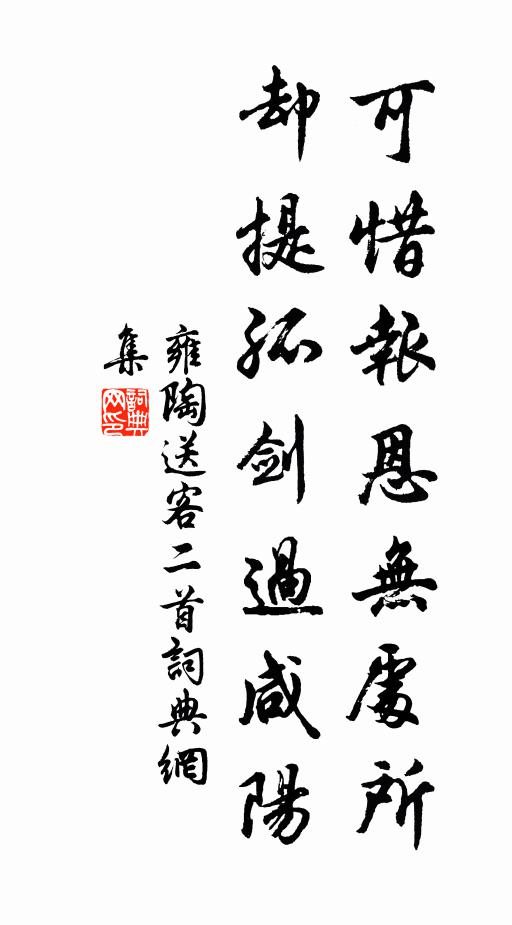 可惜報恩無處所
却提孤劍過咸陽
雍陶送客二首詞典網
集
詞典
网印